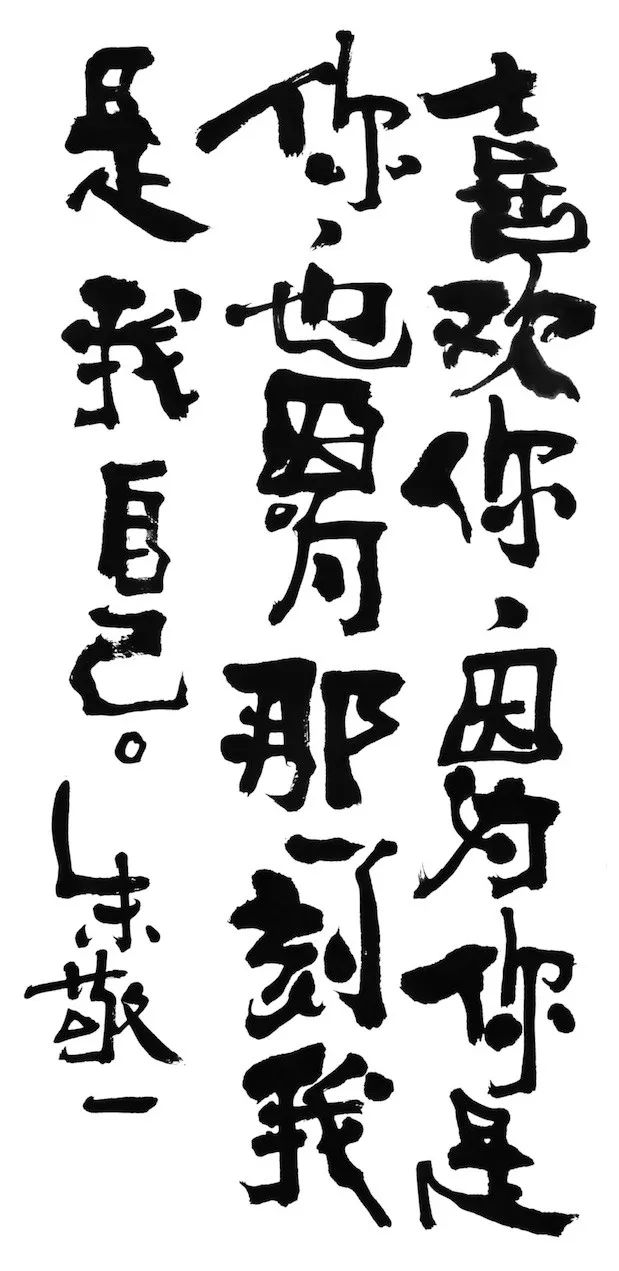 喜欢你，因为你是
你，也因为那一刻我
是我自己。朱敬一